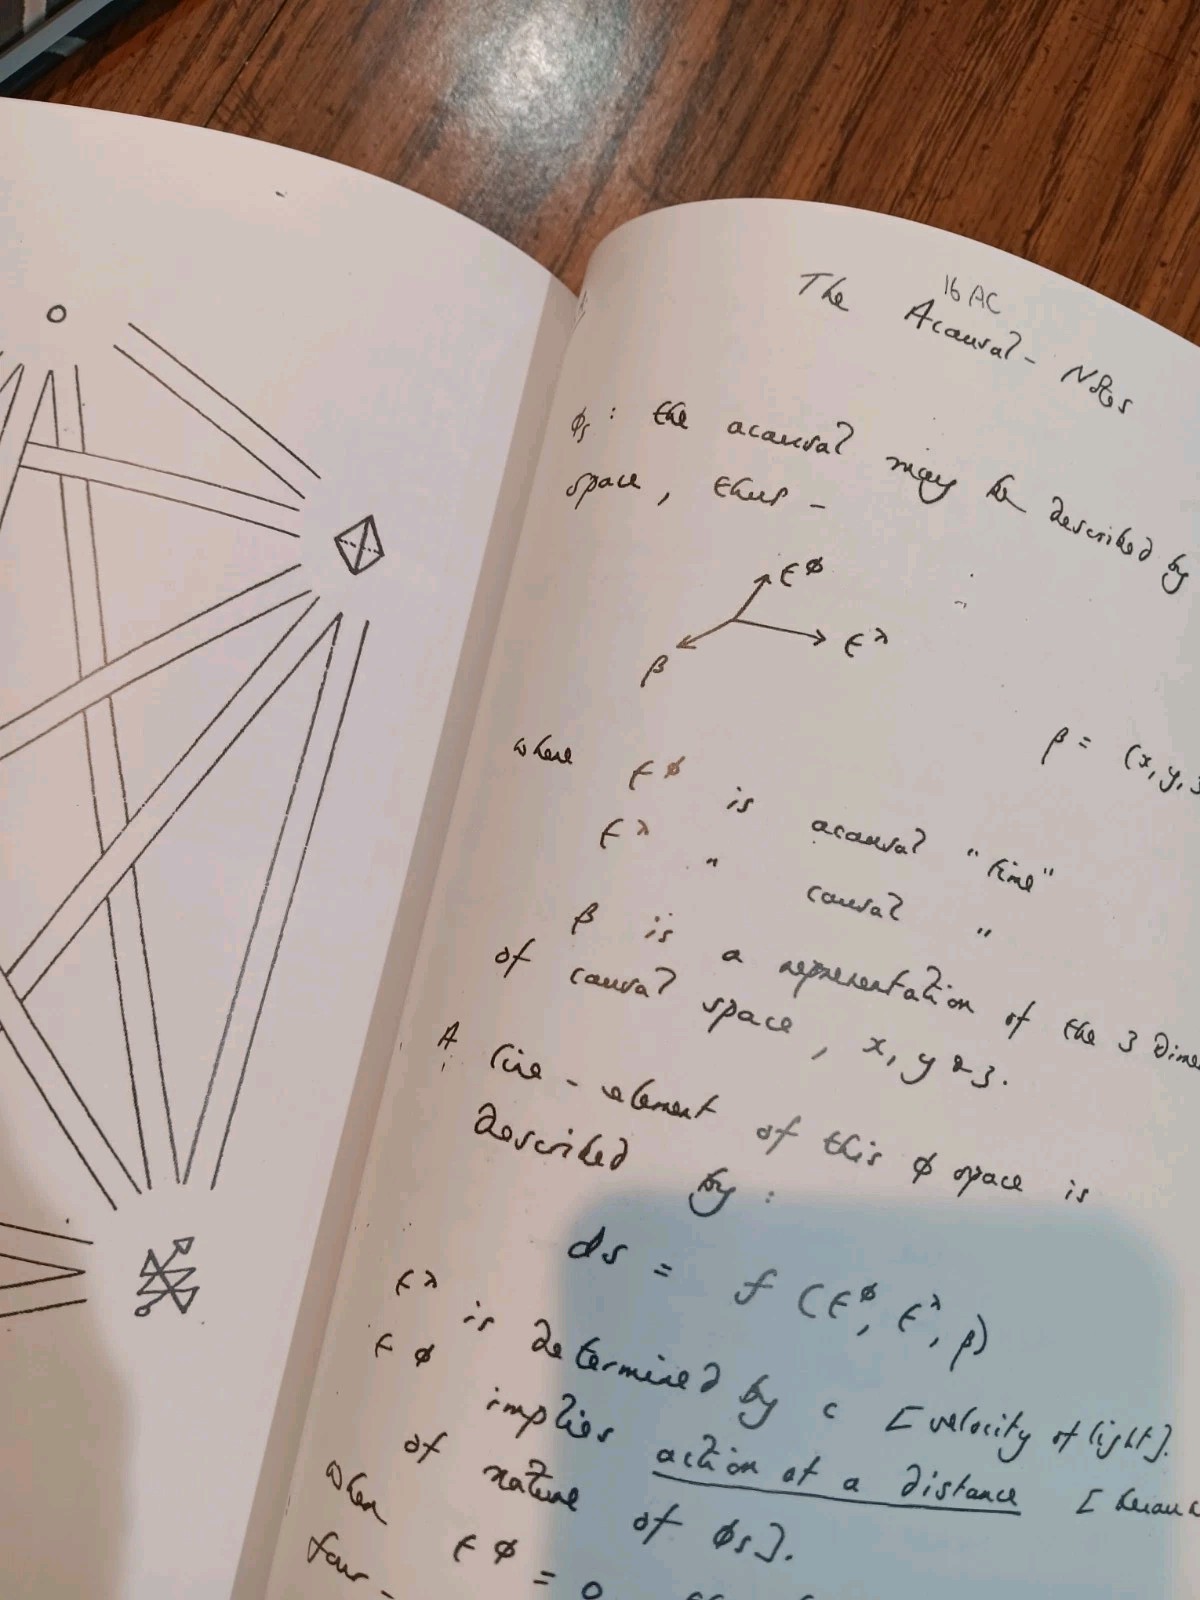 16 AC
The Acausal - Notes
φs : the acausal may be described by
space, thus -
tφ
tλ
β
β = (x, y, z
where tφ is acausal "time"
tλ " causal "
β is a representation of the 3 dime
of causal space, x, y & z.
A line-element of this φ space is
described by :
ds = f (tφ, tλ, β)
tλ is determined by c [velocity of light].
tφ implies action at a distance [becau
of nature of φs].
when tφ = 0
four-